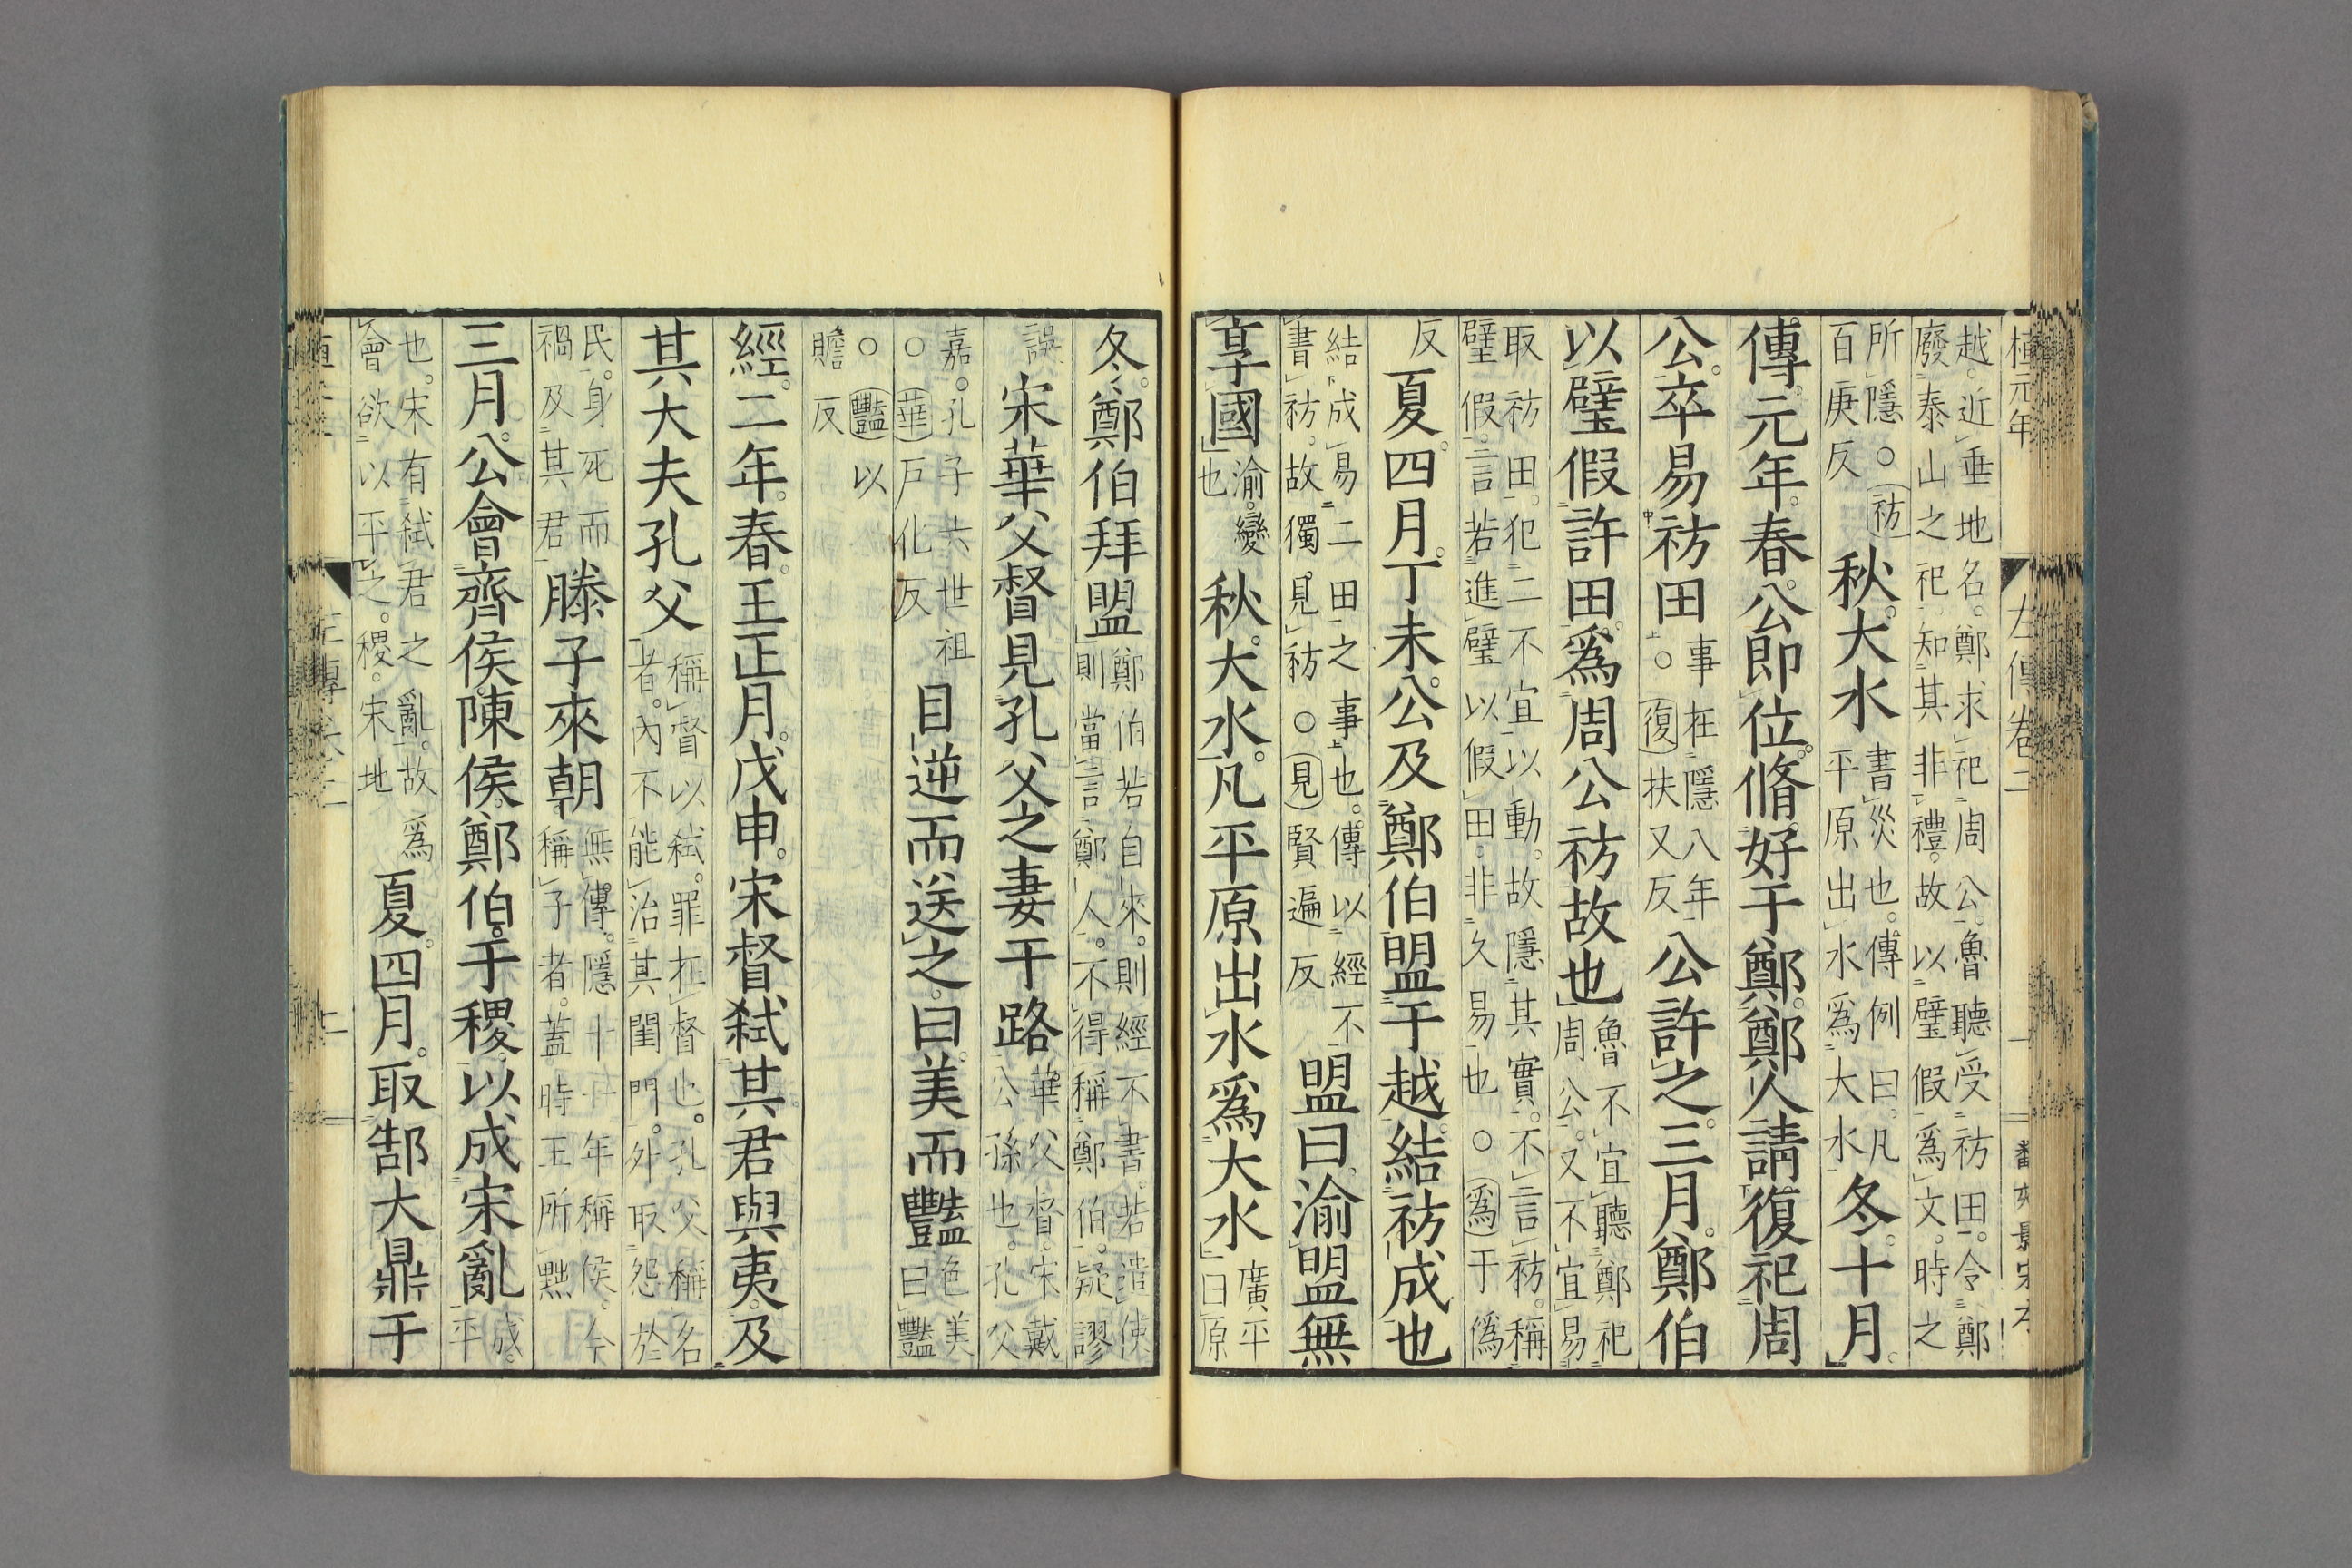 桓元年 左傳卷二 一
越。近垂地名。鄭求祀周公。魯聽受祊田。令鄭
廢泰山之祀。知其非禮。故以璧假爲文。時之
所隱。○祊
百庚反
秋。大水
書災也。傳例曰。凡
平原出水爲大水
冬。十月。
傳。元年。春。公即位。脩好于鄭。鄭人請復祀周
公。卒易祊田
事在隱八年
○復扶又反
公許之。三月。鄭伯
以璧假許田。爲周公祊故也
魯不宜聽鄭祀
周公。又不宜易
取祊田。犯二不宜以動。故隱其實。不言祊。稱
璧假。言若進璧以假田。非久易也○爲于僞
反
夏。四月。丁未。公及鄭伯盟于越。結祊成也
結成易二田之事也。傳以經不
書祊。故獨見祊○見賢遍反
盟曰。渝盟無
享國
渝。變
也
秋。大水。凡平原出水爲大水
廣平
曰原
冬。鄭伯拜盟
鄭伯若自來。則經不書。若遣使
則當言鄭人。不得稱鄭伯。疑謬
誤
宋華父督見孔父之妻于路
華父督。宋戴
公孫也。孔父
嘉。孔子六世祖
○華戶化反
目逆而送之。曰。美而豔
色美
曰豔
○豔以
贍反
經。二年。春。王正月。戊申。宋督弒其君與夷。及
其大夫孔父
稱督以弒。罪在督也。孔父稱名
者。內不能治其閨門。外取怨於
民。身死而
禍及其君
滕子來朝
無傳。隱十一年稱侯。今
稱子者。蓋時王所黜
三月。公會齊侯。陳侯。鄭伯。于稷。以成宋亂
成。
平
也。宋有弒君之亂。故爲
會欲以平之。稷。宋地
夏。四月。取郜大鼎于
二